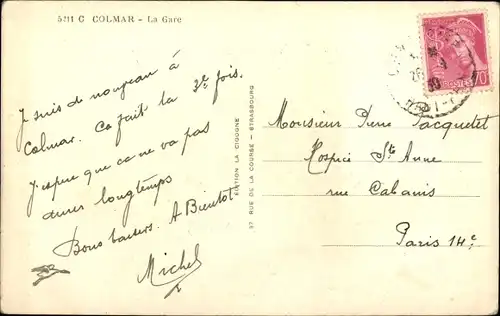 5211 C COLMAR - La Gare
Je suis de nouveau à
Colmar. Ca fait la 3e fois.
J'espère que ca ne va pas
durer longtemps
Bons baisers. A Bientot
Michel
EDITION LA CIGOGNE
37 RUE DE LA COURSE - STRASBOURG
POSTES
70
Monsieur Pierre Jacquetet
Hospice Ste Anne
rue Cabanis
Paris 14e